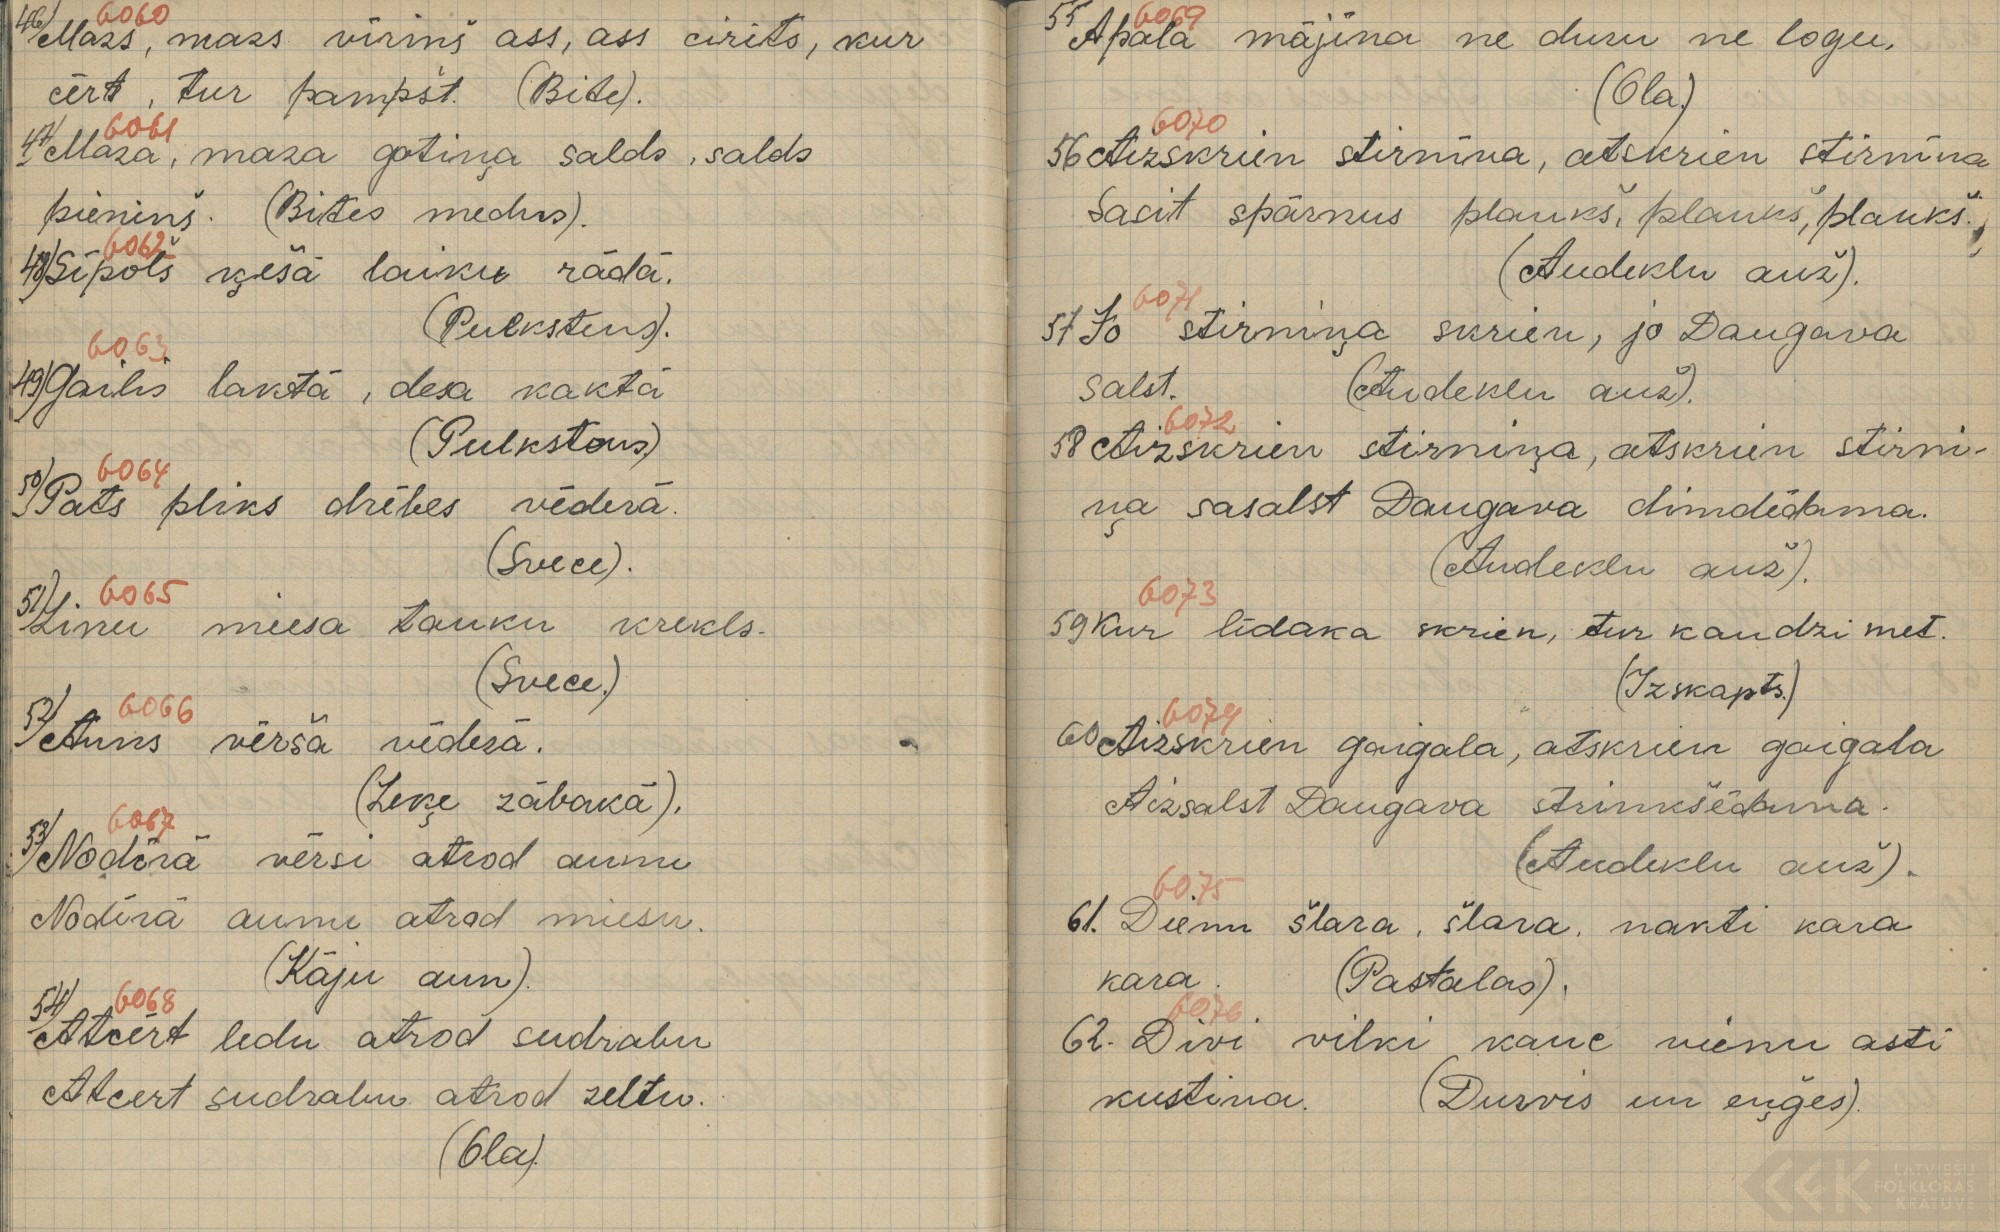 46) 6060
Mazs, mazs vīriņš ass, ass cirits, kur
cērt, tur pampst. (Bite).
47) 6061
Maza, maza gotiņa salds, salds
pieniņš. (Bites medus).
48) 6062
Sīpols ķešā laiku rādā.
(Pulkstens).
6063
49) Gailis laktā, desa kaktā
(Pulkstens)
50) 6064
Pats pliks drēbes vēderā.
(Svece).
51) 6065
Linu miesa tauku krekls.
(Svece.)
52) 6066
Auns vērša vēderā.
(Zeķe zābakā).
53) 6067
Nodīrā vērsi atrod aunu
Nodīrā aunu atrod miesu.
(Kāju aun).
54) 6068
Atcērt ledu atrod sudrabu
Atcert sudrabu atrod zeltu.
(Ola).
55 6069
Apala mājina ne duru ne logu.
(Ola.)
6070
56 Aizskrien stirnina, atskrien stirnina
Sasit spārnus plaukš, plaukš, plaukš.
(Audeklu auž).
6071
57 Jo stirniņa skrien, jo Daugava
salst. (Audeklu auž).
6072
58 Aizskrien stirniņa, atskrien stirni-
ņa sasalst Daugava dimdēdama.
(Audeklu auž).
6073
59 Kur līdaka skrien, tur kaudzi met.
(Izskapts.)
6074
60 Aizskrien gaigala, atskrien gaigala
Aizsalst Daugava strinkšēdama.
(Audeklu auž).
6075
61. Dienu šlara, šlara, nakti kara
kara. (Pastalas).
6076
62. Divi vilki kauc vienu asti
kustina. (Durvis un eņģes).
LATVIEŠU
FOLKLORAS
KRĀTUVE